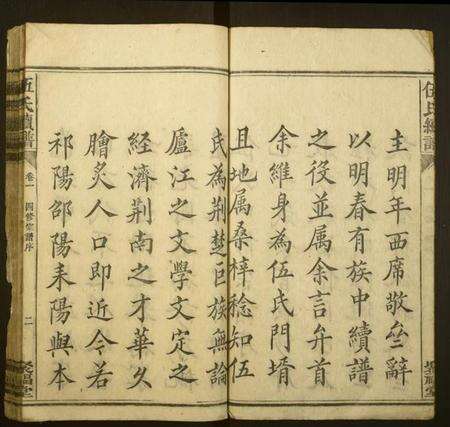 伍氏續譜
聚福堂
主明年西席敬. 辭
以明春有族中續譜
之役並属余言弁首
余維身為伍氏門壻
且地属桑梓稔知伍
氏為荆楚巨族無論
廬江之文學文定之
經濟荆南之才華久
膾炙人口即近今若
祁陽邵陽耒陽與本
伍氏續譜
卷一
四修宗譜序
二
聚福堂